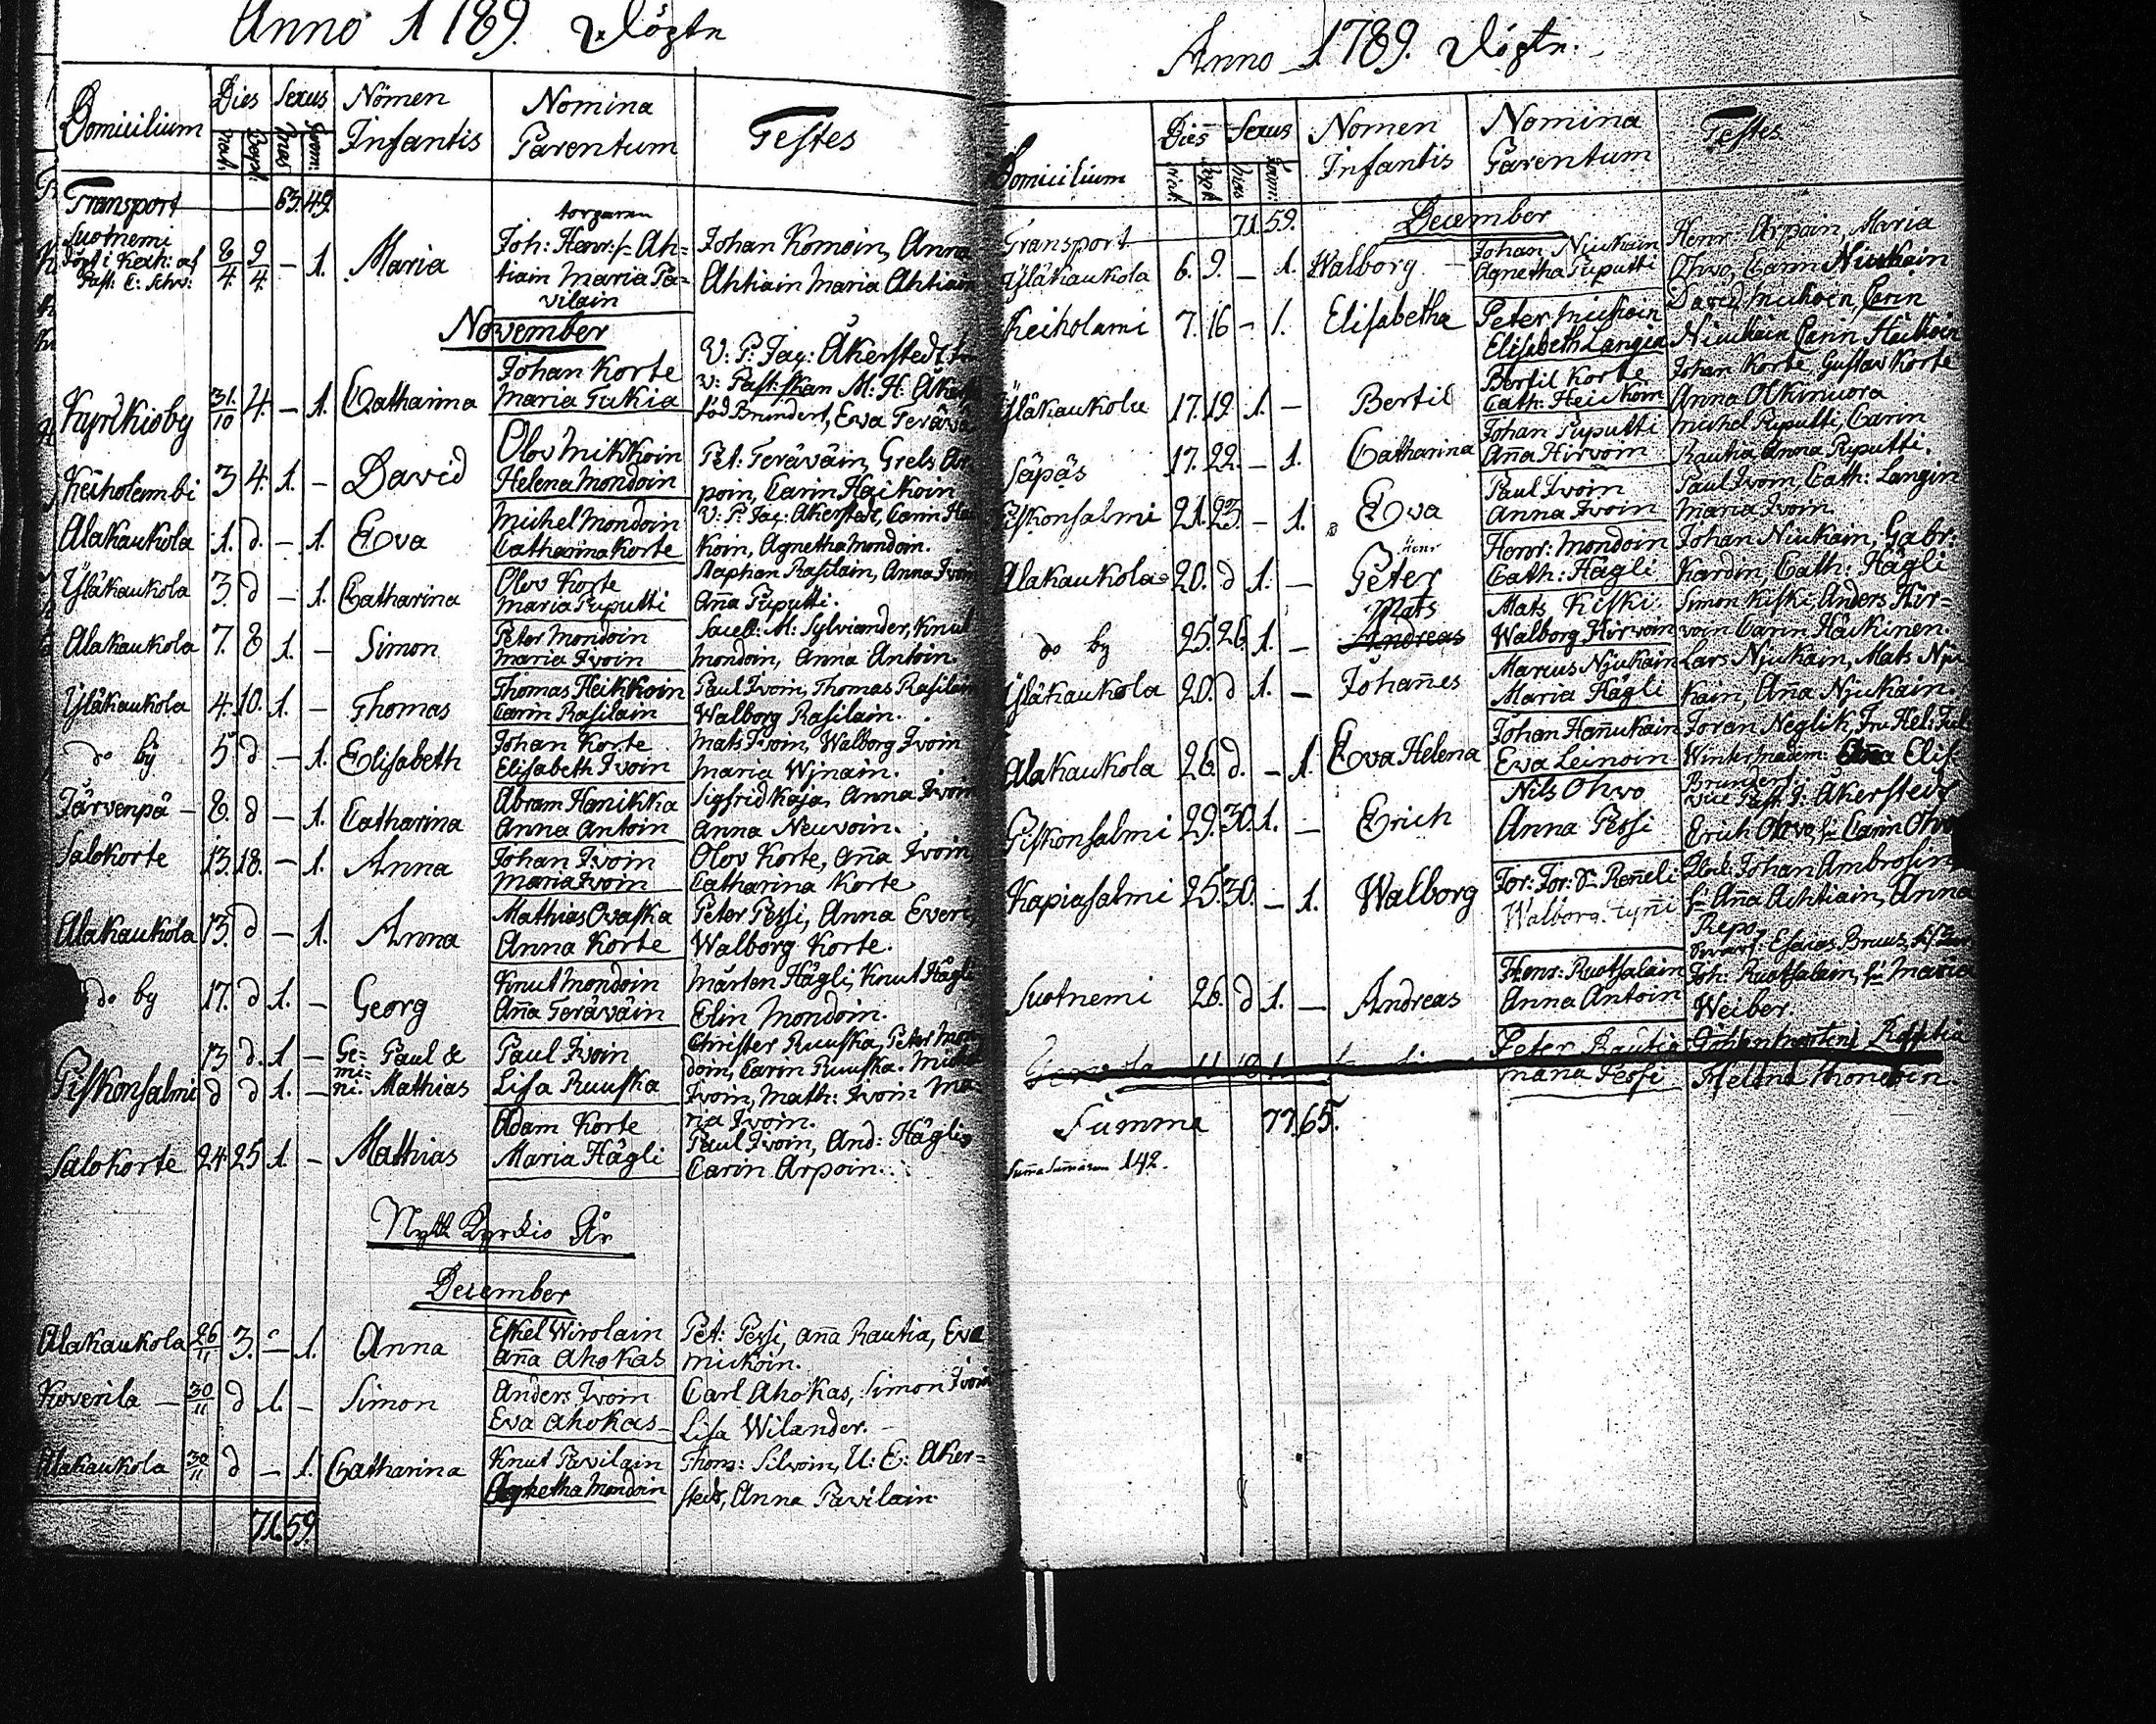 Anno 1789. Döptn
Domicilium Dies Sexus Nomen Infantis Nomina Parentum Testes
Nat: Bapt: Mas Foem:
Transport 63. 49.
Suotnemi 8/4 9/4 – 1. Maria Joh: Henr: Ah= Johan Komoin, Anna
döpt i Kexh: af tiain Maria Pa= Ahtiain Maria Ahtiain
Past: C: Schv: vilain
November
Kyrckioby 31./10 4. – 1. Catharina Johan Korte V: P: Jac: Åkerstedt
Maria Tukia v: Past:skan M: H: Åker
född Brundert, Eva Terävä
Keiholambi 3 4. 1. – David Olov Mikkoin Pet: Teräväin, Grels Ar
Helena Mondoin poin, Carin Haikoin
Alakaukola 1. d. – 1. Eva Michel Mondoin V: P: Jac: Åkerstedt, Carin Ha
Catharina Korte koin, Agnetha Mondoin.
Yläkaukola 3. d – 1. Catharina Olov Korte Staphan Rasilain, Anna Ivoin
Maria Puputti Aña Puputti.
Alakaukola 7. 8 1. – Simon Peter Mondoin Sacell: M: Sylviander, Knut
Maria Ivoin Mondoin, Anna Antoin.
Yläkaukola 4. 10. 1. – Thomas Thomas Heikkoin Paul Ivoin, Thomas Rasilain
Carin Rasilain Walborg Rasilain.
do by 5 d – 1. Elisabeth Johan Korte Mats Ivoin, Walborg Ivoin
Elisabeth Ivoin Maria Wjnain.
Järvenpä – 8. d – 1. Catharina Abram Hanikka Sigfrid Kaja, Anna Ivoin
Anna Antoin Anna Neuvoin.
Salokorte 13. 18. – 1. Anna Johan Ivoin Olov Korte, Aña Ivoin
Maria Ivoin Catharina Korte
Alakaukola 13. d – 1. Anna Mathias Ovaska Peter Pessi, Anna Everi
Anna Korte Walborg Korte.
do by 17. d 1. – Georg Knut Mondoin Mårten Hägli, Knut Hägli
Aña Teräväin Elin Mondoin.
13 d. 1 – Ge= Paul & Paul Ivoin Christer Ruuska, Peter Mon
mi= doin, Carin Ruuska. Michel
Piskonsalmi d d 1. – ni. Mathias Lisa Ruuska Ivoin, Math: Ivoin Ma
ria Ivoin.
Salokorte 24. 25 1. – Mathias Adam Korte Paul Ivoin, And: Hägli
Maria Hägli Carin Arpoin.
Nytt Kyrckio År
December
Alakaukola 26/11 3. – 1. Anna Eskel Wirolain Pet: Pessi, aña Rautia, Eva
aña Ahokas Mickoin.
Koverila – 30/11 d 1. – Simon Anders Ivoin Carl Ahokas, Simon Ivoin
Eva Ahokas Lisa Wilander.
Alakaukola 30/11 d – 1. Catharina Knut Pavilain Thom: Silvoin, U: E: Åker=
Agnetha Mondoin stedt, Anna Pavilain
71. 59.
Anno 1789. Döptn.
Domicilium Dies Sexus Nomen Infantis Nomina Parentum Testes
Nat: Bapt: Mas Foem:
Transport 71. 59. December
Yläkaukola 6. 9. – 1. Walborg Johan Niukain Henr: Arpoin, Maria
Agnetha Puputti Ohvo, Carin Niukain
Keiholami 7. 16 – 1. Elisabetha Peter Mickoin David Mickoin, Carin
Elisabeth Langin Niukain Carin Heikoin
Yläkaukola 17. 19. 1. – Bertil Bertil Korte Johan Korte Gustav Korte
Cath: Heickoin Anna Olkinuora
Säpäs 17. 22. – 1. Catharina Johan Puputti Michel Puputti, Carin
Aña Hirvoin Rautia Anna Puputti.
Piskonsalmi 21. 23. – 1. Eva Paul Ivoin Paul Ivoin, Cath: Langin
Anna Ivoin Maria Ivoin.
Alakaukola 20. d 1. – Peter Henr: Mondoin Johan Niukain, Gabr:
Henr Cath: Hägli Kardin, Cath: Hägli
do by 25. 26. 1. – Mats Mats Kiski. Simon Kiski, Anders Hir=
Andreas Walborg Hirvoin voin Carin Häckinen.
Yläkaukola 20. d 1. – Johañes Marcus Njukain Lars Njukain, Mats Nju
Maria Hägli kain, Aña Njukain.
Alakaukola 26. d. – 1. Eva Helena Johan Hañukain Joran Neglik, Fru Hel: Jul:
Eva Leinoin Winter Madem: Elis
Brundert.
Piskonsalmi 29. 30. 1. – Erich Nils Ohvo vice Past: J: Åkerstedt
Anna Pessi Erich Ohvo, Carin Ohvo
Kapiasalmi 25. 30. – 1. Walborg Jör: Jör: Sn Reñeli Klock: Johan Ambrosius
Walborg Tyñi Aña Achtiain, Anna
Repo
Suotnemi 26. d 1. – Andreas Henr: Ruotsalain Esaias Bruus,
Anna Antoin Joh: Ruotsalain, Maria
Weiber.
Peter Rautia
Maria Pessi Helena Mondoin
Summa 77. 65.
Suña Suñarum 142.